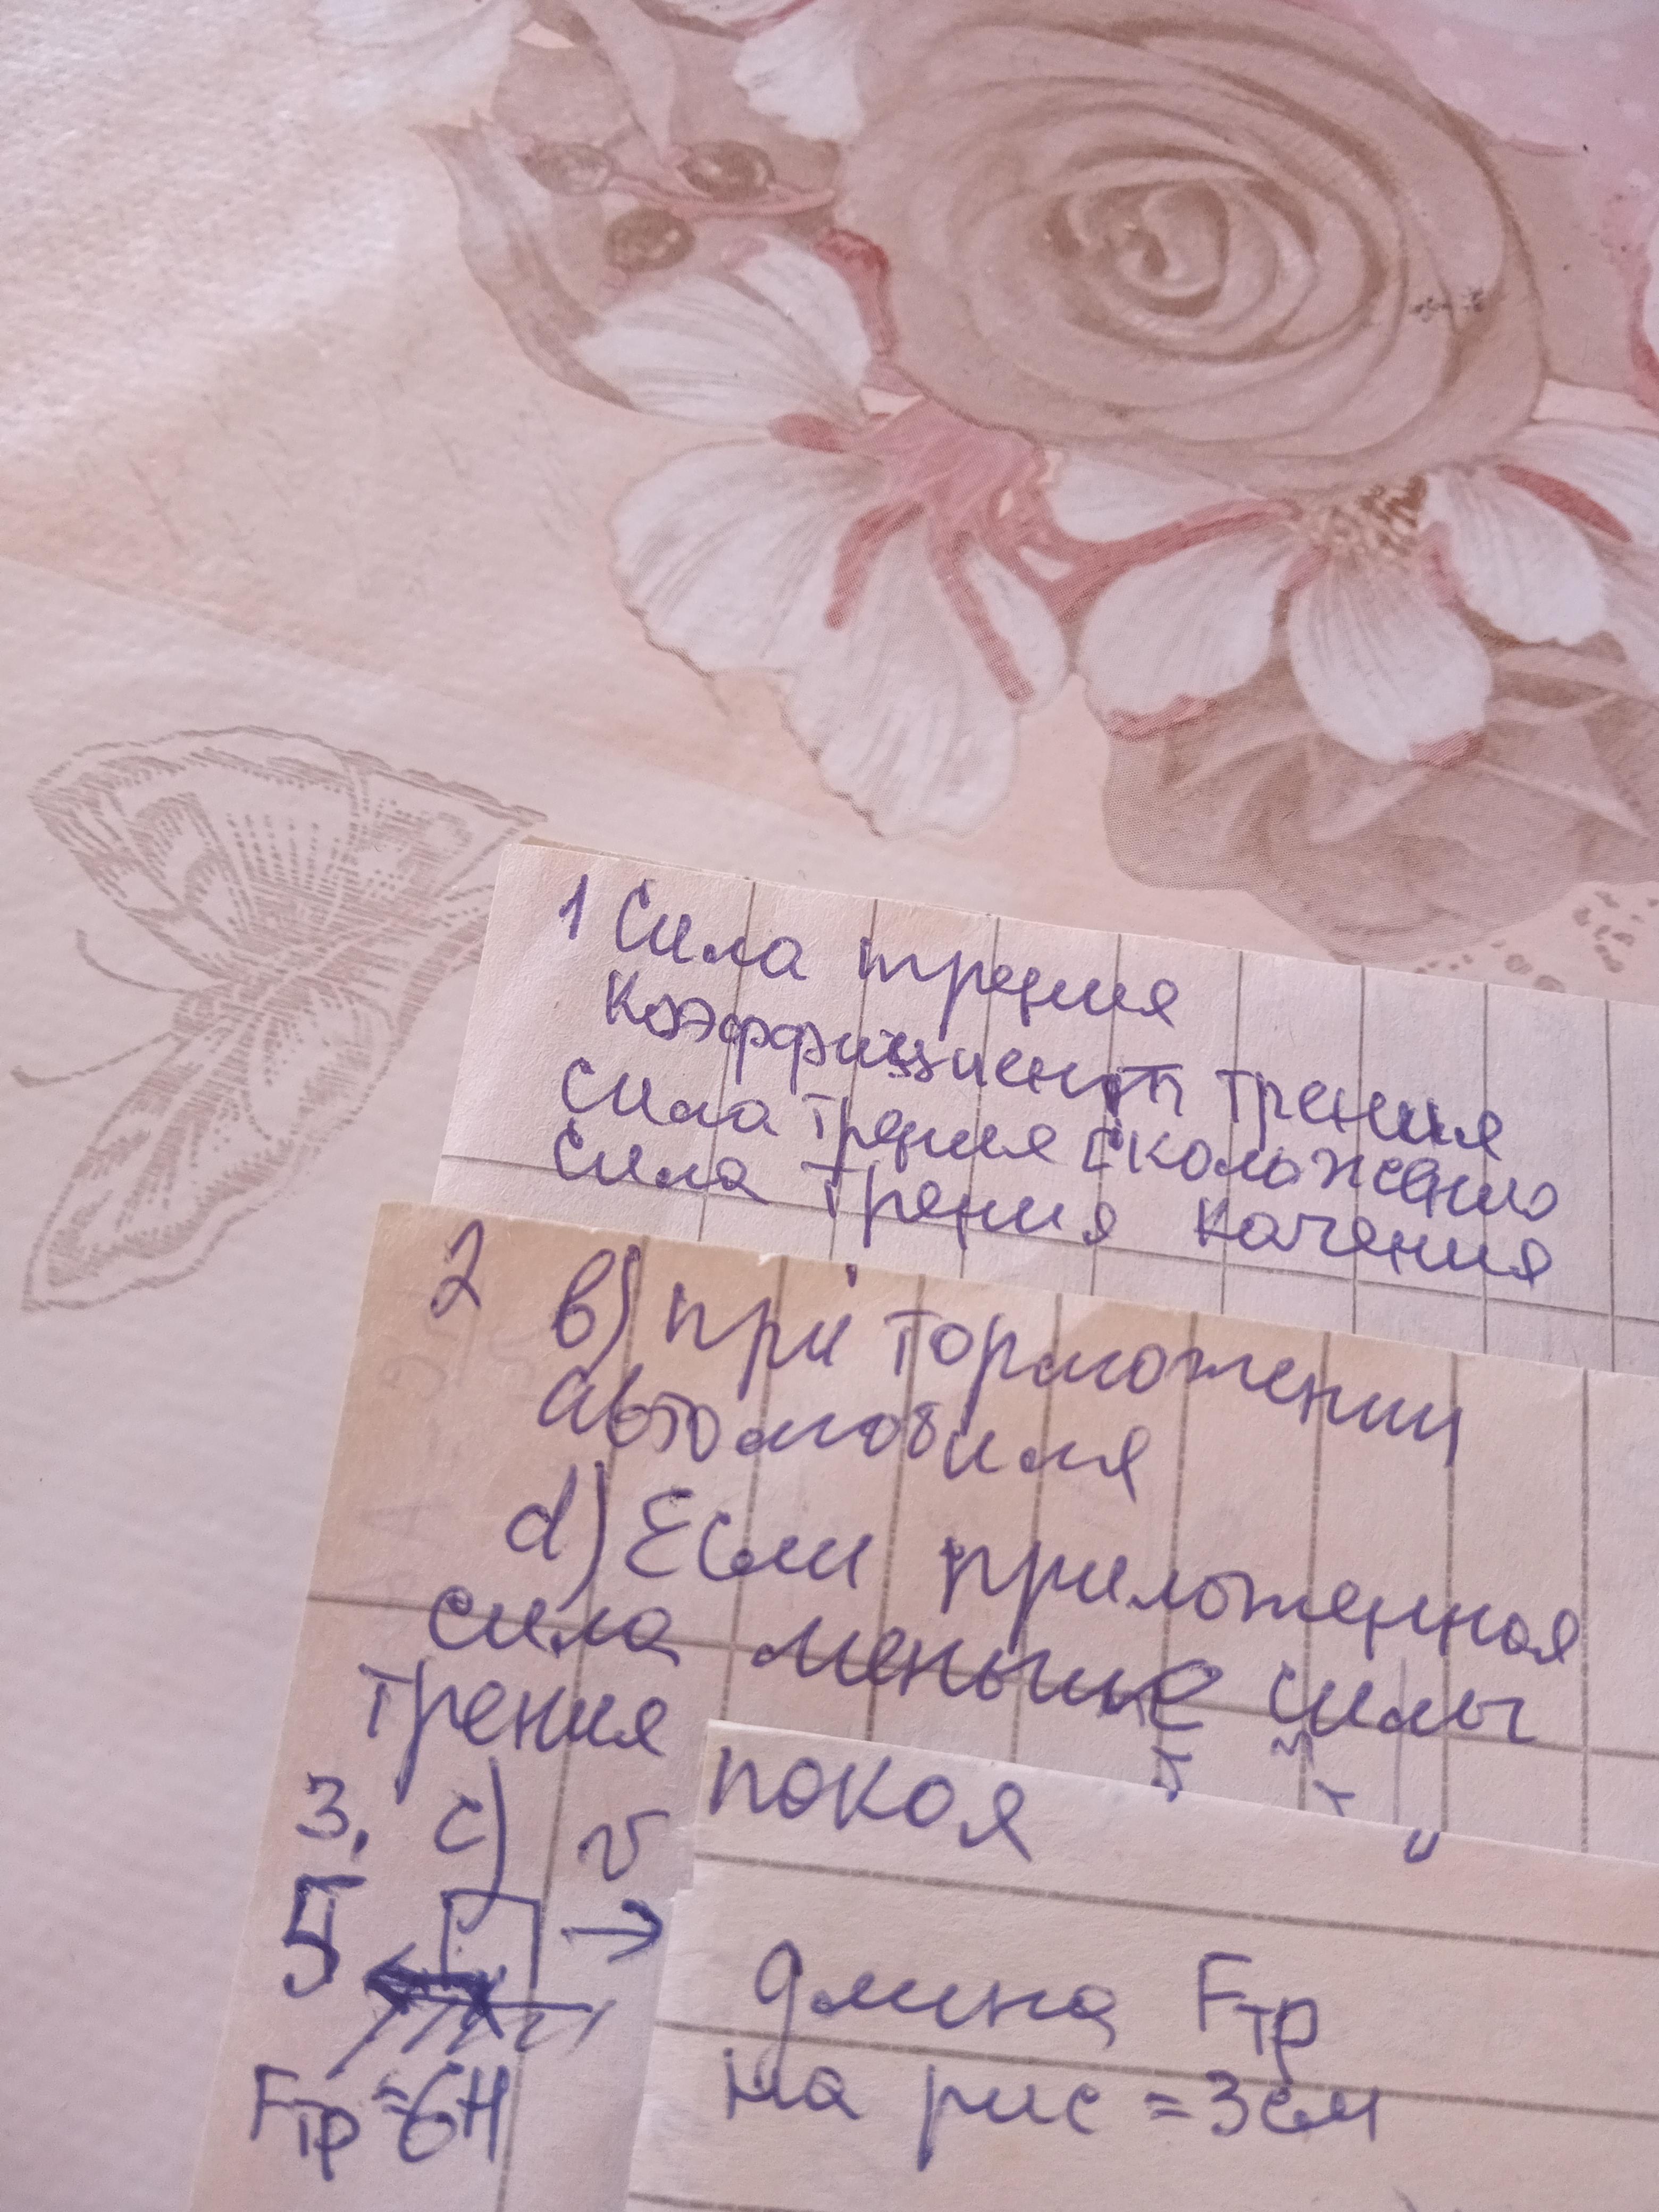 1 Сила трения
Коэффициент трения
Сила трения скольжению
Сила трения качения
2 в) при торможении
автомобиля
d) Если приложенная
сила меньше силы
трения
покоя
3. с) v
5
длина Fтр
на рис = 3 см
Fтр = 6Н